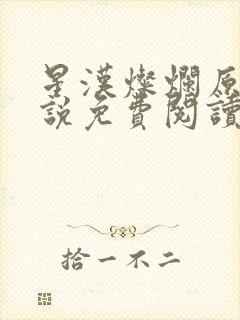 星漢燦爛原
說免費閱讀
拾一不二